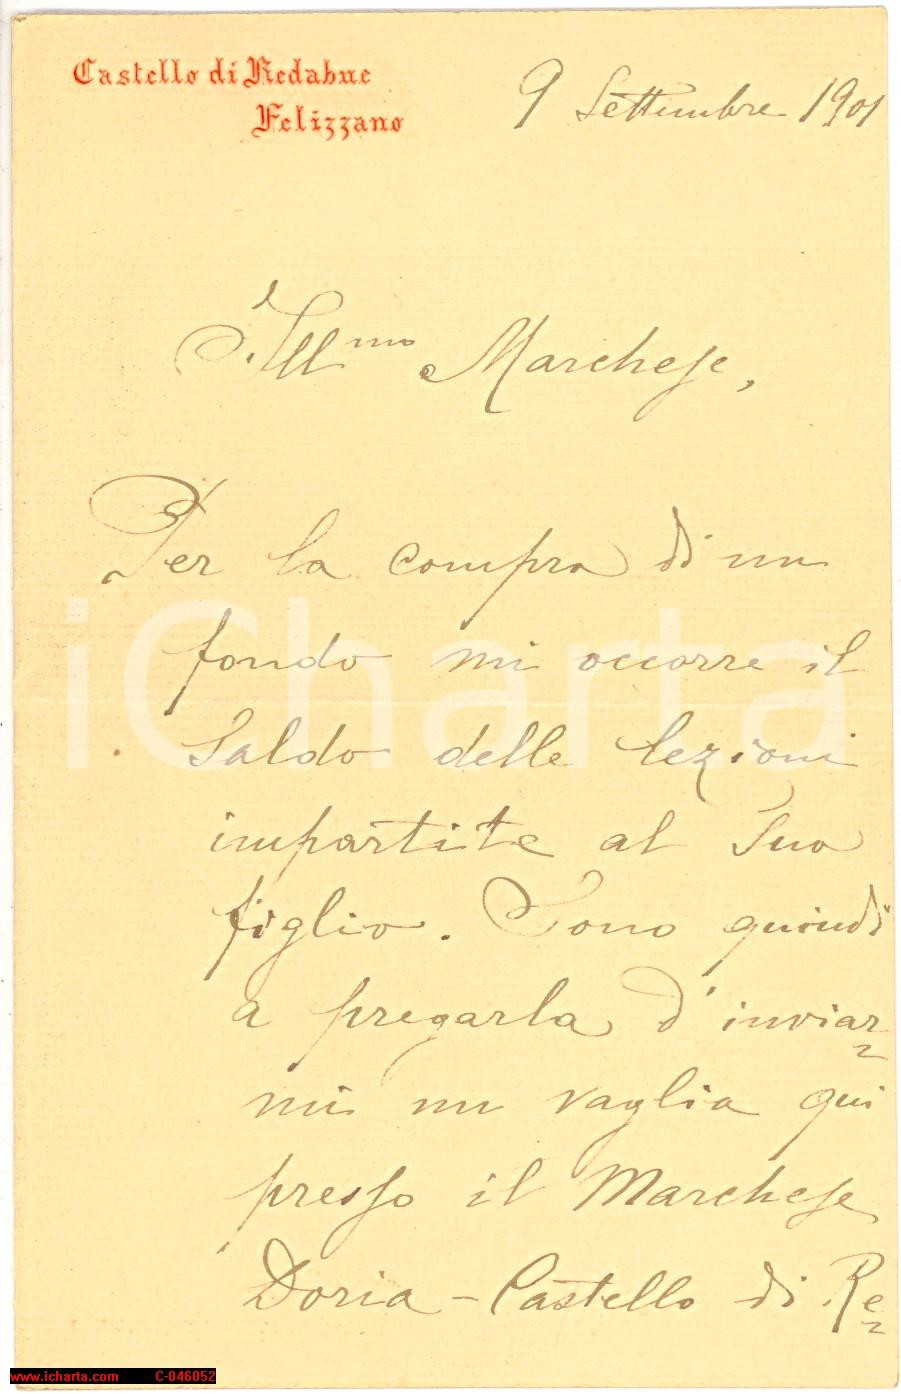 Castello di Redabue
Felizzano
9 Settembre 1901
Ill.mo Marchese,
Per la compra di un
fondo mi occorre il
Saldo delle lezioni
impartite al Suo
figlio. Sono quindi
a pregarla d'inviar-
mi un vaglia qui
presso il Marchese
Doria - Castello di Re-
iCharta
www.icharta.com C-046052